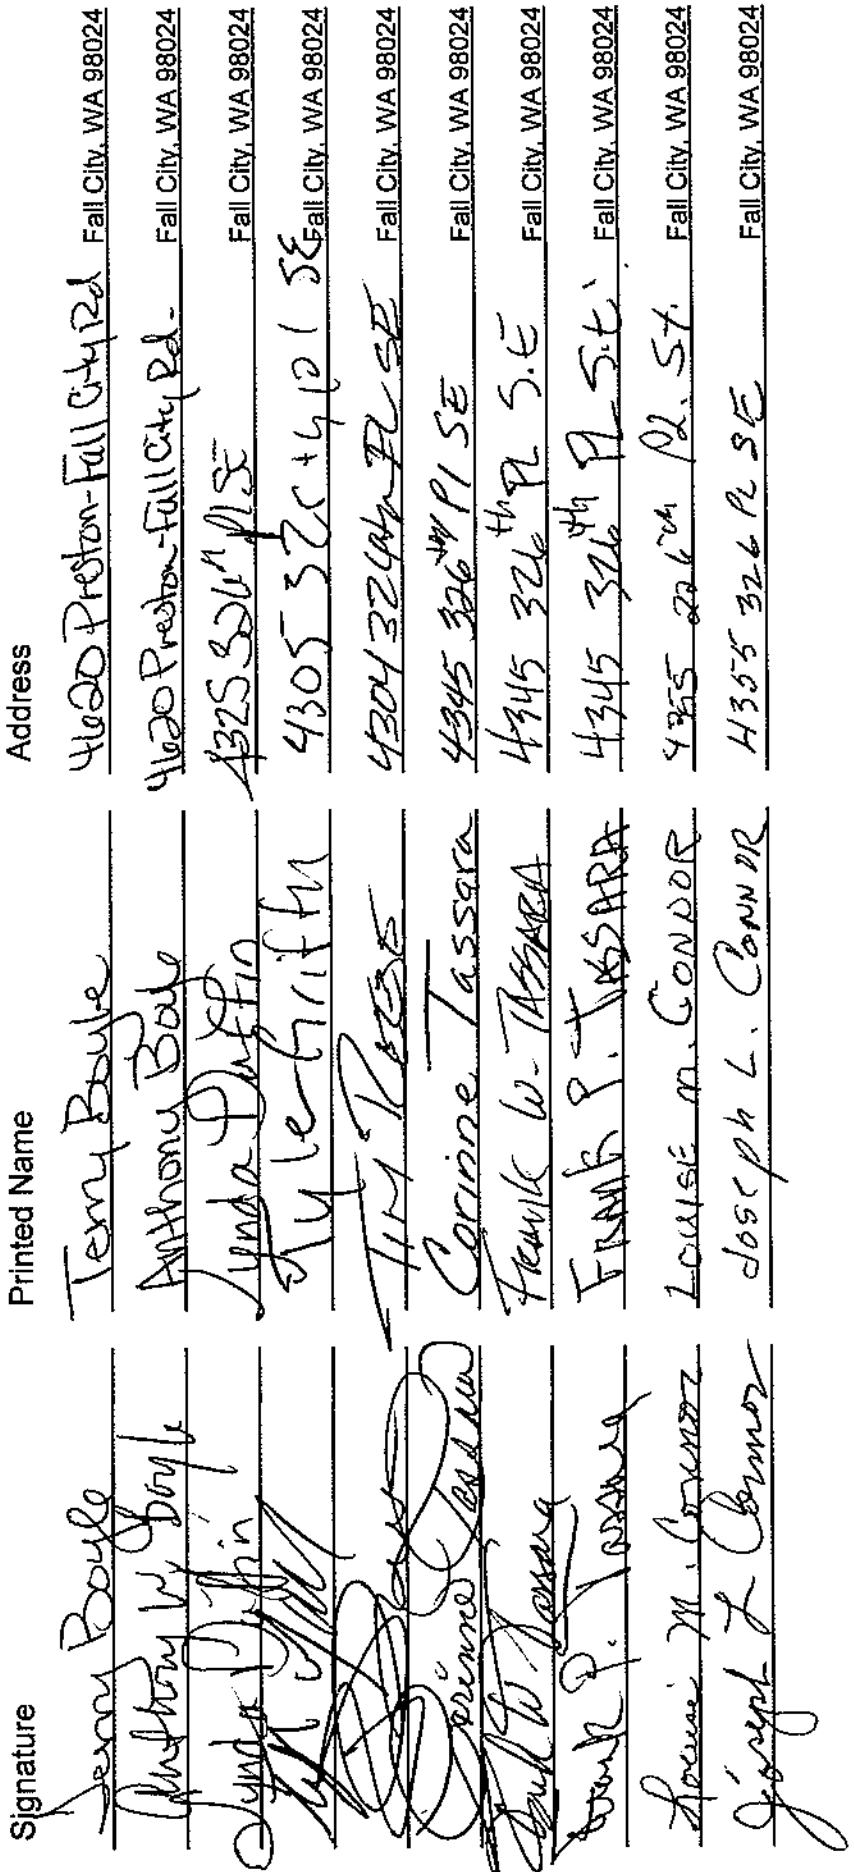 Signature Printed Name Address
Terry Boyle Terry Boyle 4620 Preston-Fall City Rd Fall City, WA 98024
Anthony W Boyle Anthony Boyle 4620 Preston-Fall City Rd. Fall City, WA 98024
Lynda Duffin Lynda Duffin 4325 326th Pl. SE Fall City, WA 98024
Tyler Griffin 4305 32 pl SE Fall City, WA 98024
TIM ROSE 4304 324th PL SE Fall City, WA 98024
Corinne Tassara Corinne Tassara 4345 326th Pl SE Fall City, WA 98024
Frank W Tassara Frank W. TASSARA 4345 326th PL S.E Fall City, WA 98024
Frank P. Tassara FRANK P. TASSARA 4345 326th Pl S.E. Fall City, WA 98024
Louise M. Connor LOUISE M. CONNOR 4355 226th Pl. St. Fall City, WA 98024
Joseph L Connor Joseph L. CONNOR 4355 326 PL SE Fall City, WA 98024